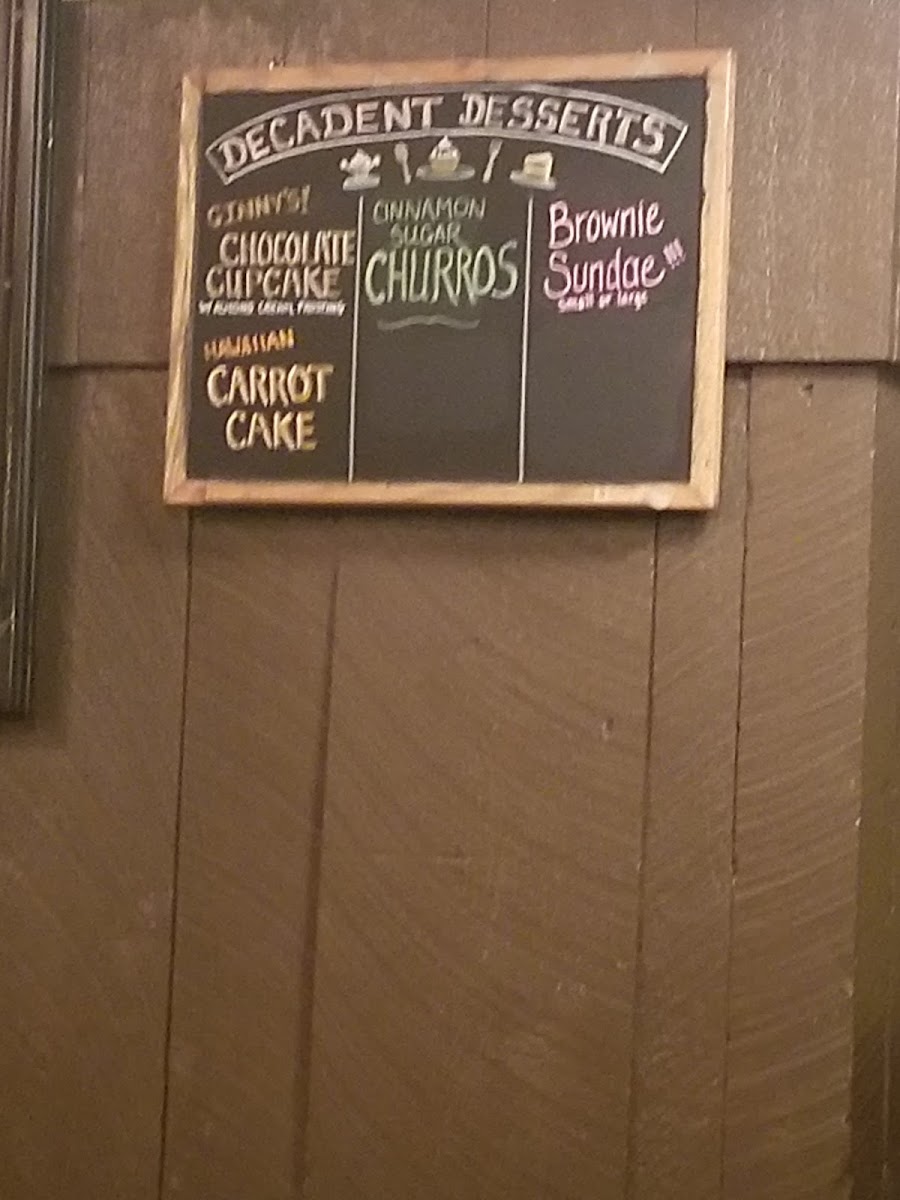 DECADENT DESSERTS
GINNY'S!
CHOCOLATE
CUPCAKE
HAWAIIAN
CARROT
CAKE
CINNAMON
SUGAR
CHURROS
Brownie
Sundae!!!
small or large